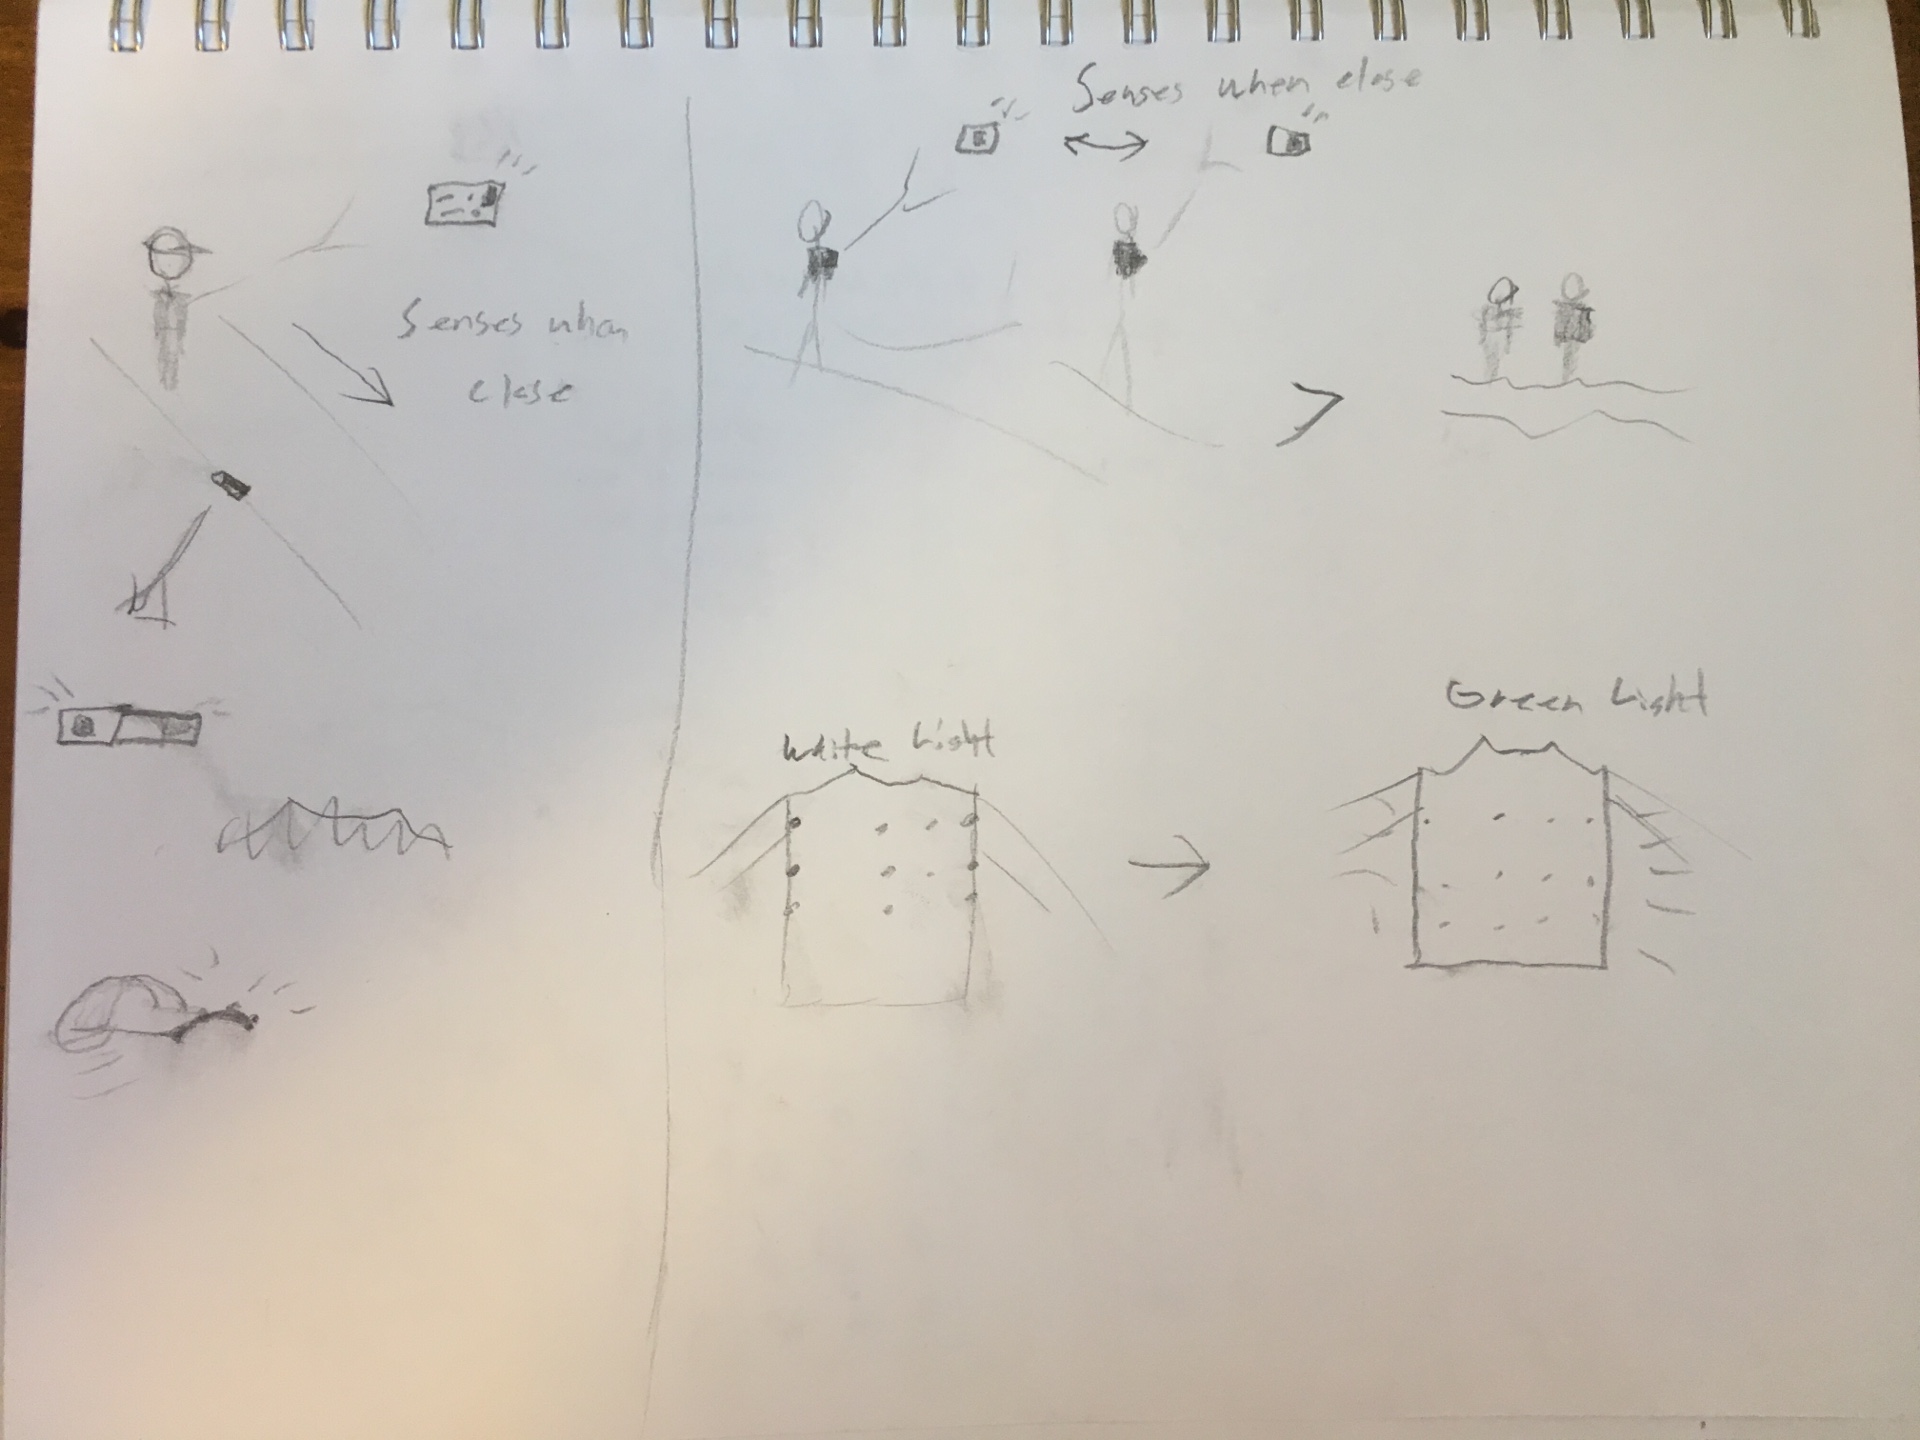 Senses when
close
Senses when close
White Light
Green Light